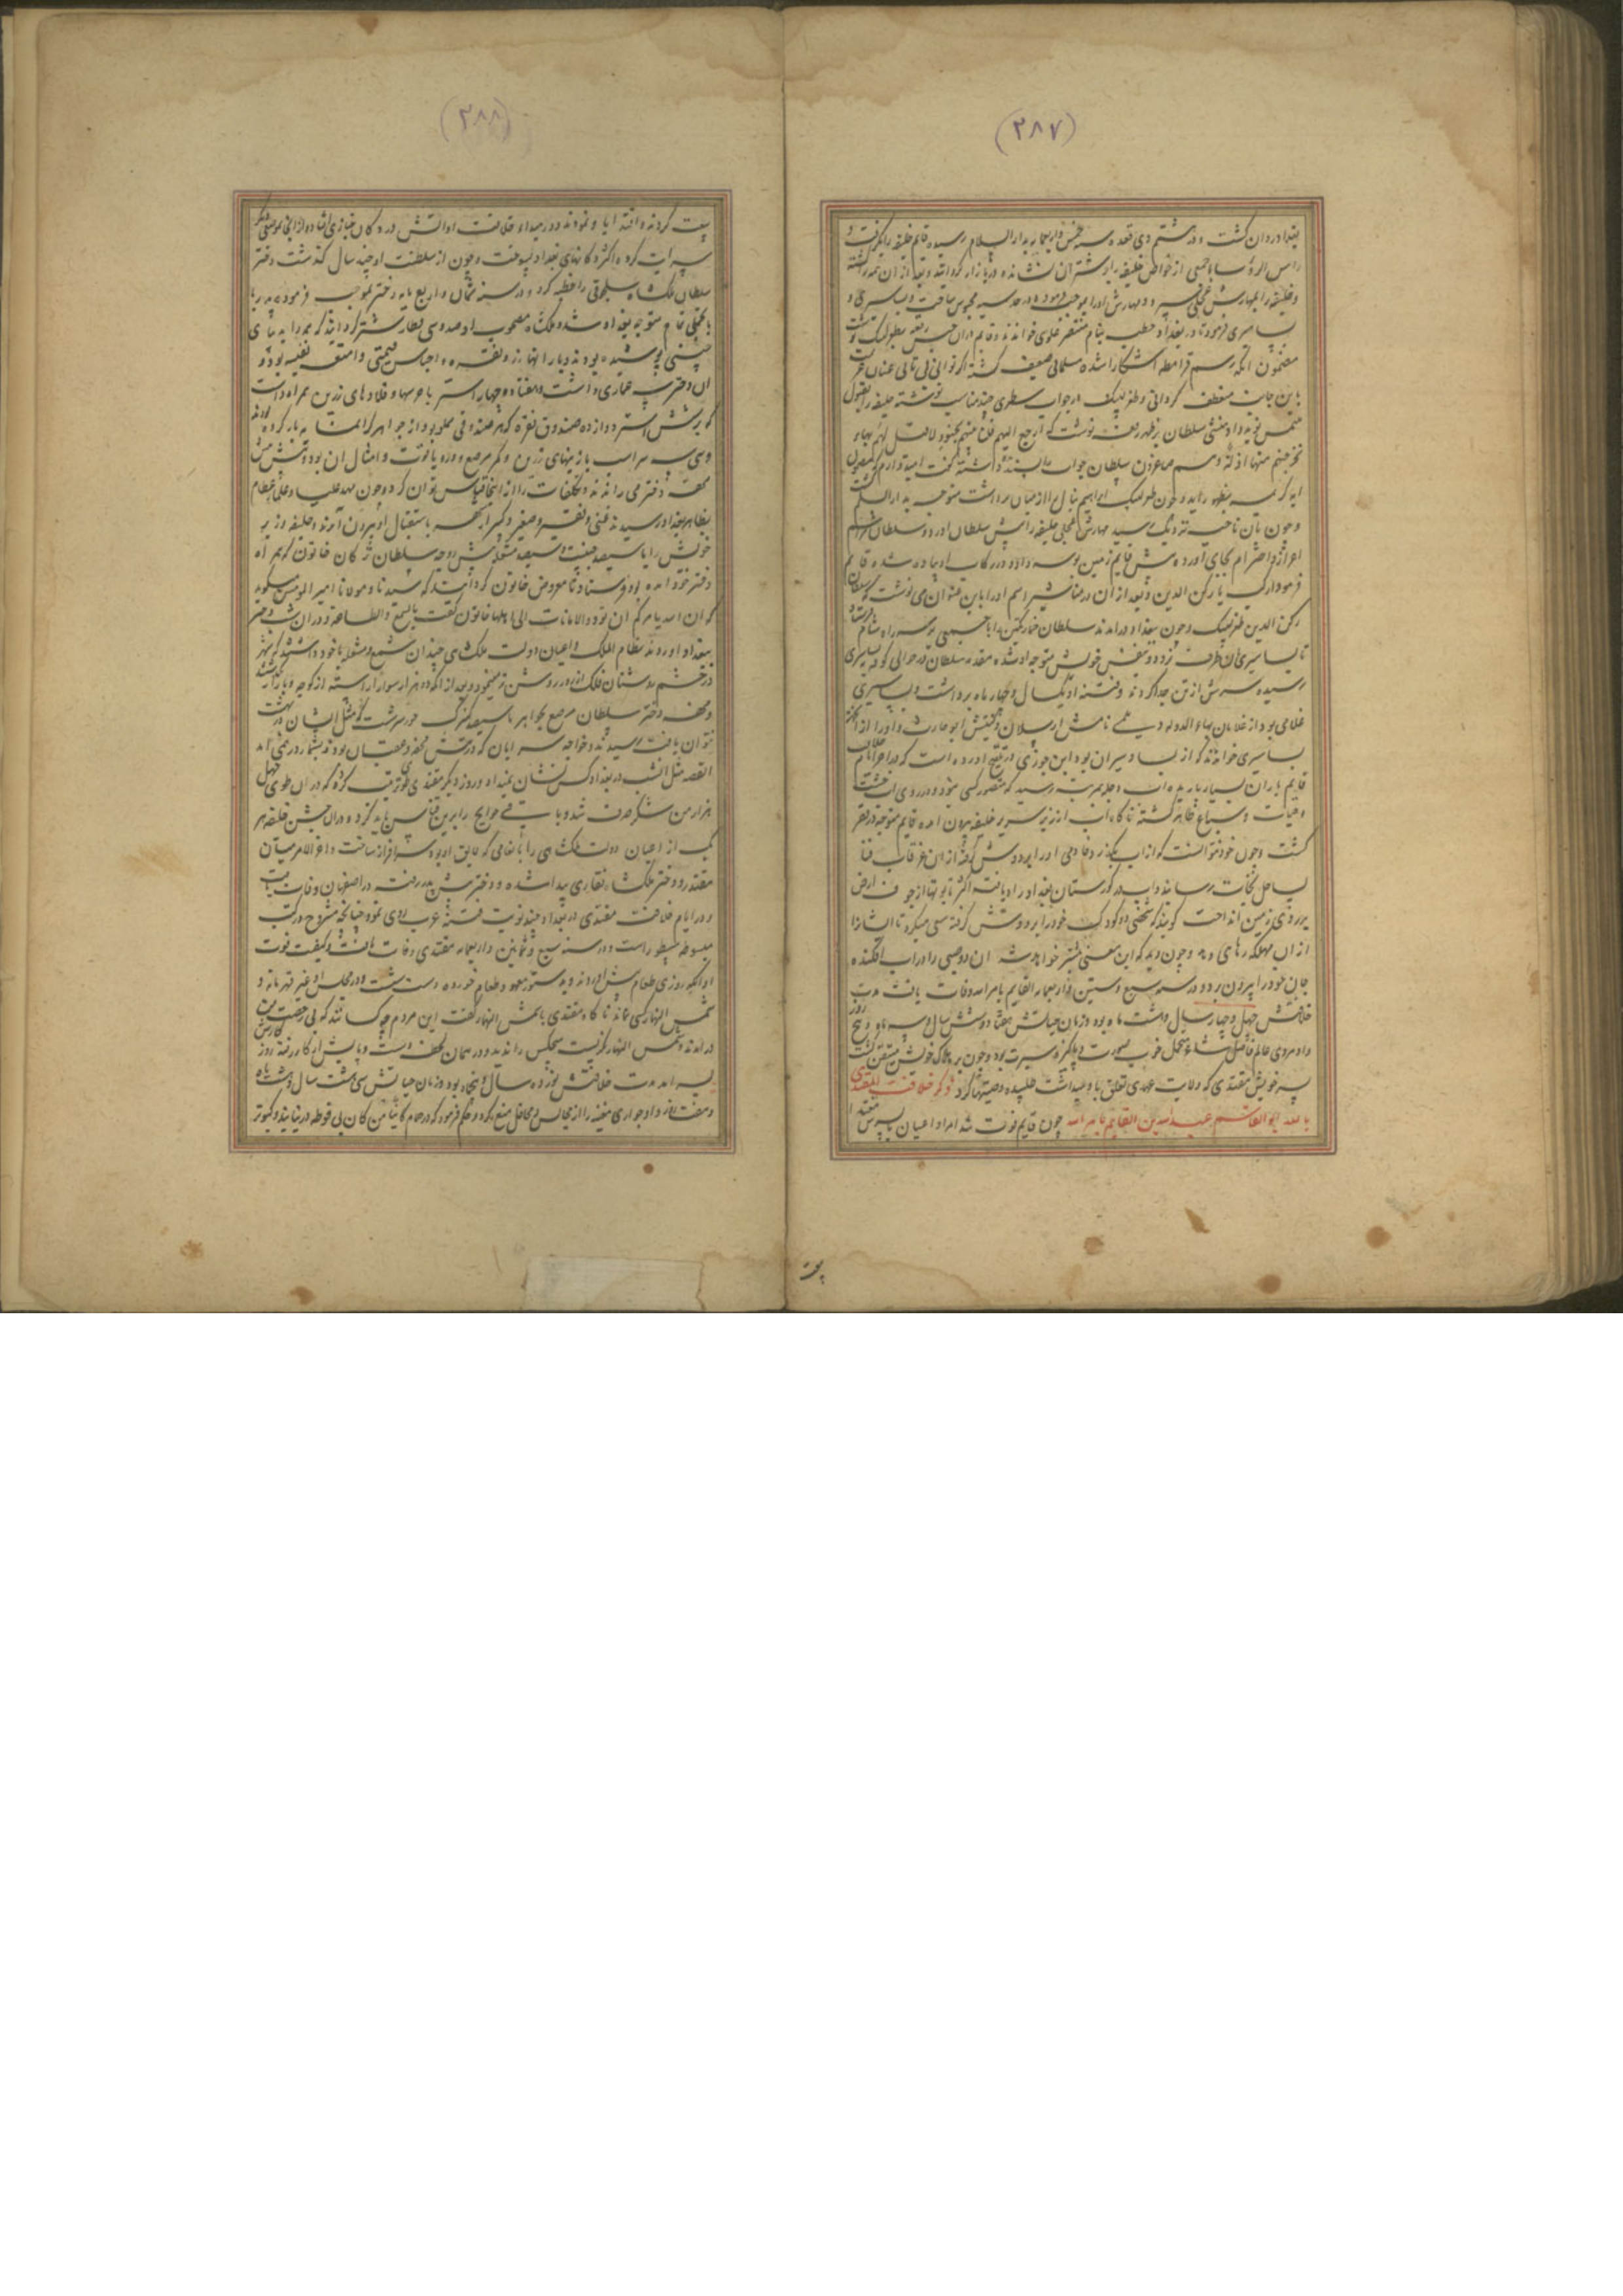 (۲۸۷)
بغداد روان گشت و در ششم ذی قعده سنه خمس و اربعمایه بدار السلام رسیده قایم خلیفه را بگرفت و
راس الرؤسا با جمعی از خواص خلیفه را بر شتران نشانده در بازار گردانید و بعد از ان همه را کشته
و خلیفه را بمهارش عجلی سپرد و مهارش او را بموجب فرموده در حدیثه محبوس ساخت و بساسیری
بساسیری فرمود تا در بغداد خطبه بنام مستنصر علوی خواندند و قایم دران حبس رقعه بطغرلبک نوشت
مضمون انکه رسم قرامطه اشکارا شده مسلمانی ضعیف گشته اگر توانی بی تانی عنان عزیمت
باین جانب منعطف گردانی و طغرلبک در جواب سطری چند مناسب نوشته خلیفه را بقبول
ملتمس نوید داد و منشی سلطان بر ظهر رقعه نوشت که ارجع الیهم فلناتینهم بجنود لا قبل لهم بها و
لنخرجنهم منها اذلة و هم صاغرون سلطان جواب را پسندیده داشته گفت امیدوارم که مضمون
ایه کریمه بظهور رسد و چون طغرلبک ابراهیم ینال را از میان برداشت متوجه بدار السلام گشت
و چون بان ناحیه نزدیک رسید مهارش عجلی خلیفه را پیش سلطان اورد و سلطان مراسم
اعزاز و احترام بجای اورده پیش قایم زمین بوسه داد و در رکاب او پیاده شده قایم
فرمود ارکب یا رکن الدین و بعد از ان در مناشیر اسم او را باین عنوان می نوشت که سلطان
رکن الدین طغرلبک و چون ببغداد درامدند سلطان خمارتکین را با جمعی بر سر راه شام فرستاد
تا بساسیری بان طرف نرود و بنفس خویش متوجه او شده مقدمه سلطان در حوالی کوفه به بساسیری
رسیده سرش از تن جدا کردند و فتنه او یکسال و چهار ماه برداشت و بساسیری
غلامی بود از غلامان بهاء الدوله دیلمی نامش ارسلان و کنیتش ابو حارث و او را از انجهت
بساسیری خوانند که از بسا و سیران بود ابن جوزی در تنقیح اورده است که در اخر ایام خلافت
قایم باران بسیار بارید و اب دجله بمرتبه رسید که متصور کسی نبود و در روی اب خشت
و حیات و سباع ظاهر گشته ناگاه اب از زیر سریر خلیفه بیرون امده قایم متوجه در قصر
گشت و چون خود نتوانست که از اب بگذرد خادمی او را بر دوش گرفته از ان غرقاب فنا
بساحل نجات رسانید و اب در گورستان بغداد راه یافته اکثر تابوتها از جوف ارض
بر روی زمین انداخت گویند که شخصی دو کودک خود را بر دوش گرفته سعی میکرد تا ایشان را
از ان مهلکه رهاند و چون دید که این معنی میسر نخواهد شد ان دو صبی را در اب افکنده
جان خود را بیرون برد و در سنه سبع و ستین و اربعمایه القایم بامر الله وفات یافت مدت
خلافتش چهل و چهار سال و هشت ماه بود و زمان حیاتش هفتاد و شش سال و سه ماه و پنج روز
و او مردی عالم فاضل شاعر متحمل خوب صورت و پاکیزه سیرت بود و چون بر هلاک خویش متیقن گشت
پسر خویش مقتدی که ولایت عهدی تعلق باو میداشت طلبیده وصیتها کرد ذکر خلافت المقتدی
بالله ابو القاسم عبدالله بن القایم بامر الله چون قایم فوت شد امرا و اعیان با پسرش مقتدا
بیعت
(۲۸۸)
بیعت کردند
سرایت کرده اکثر دکانهای بغداد بسوخت و چون از سلطنت او چند سال گذشت دختر
سلطان ملکشاه سلجوقی را خطبه کرد و در سنه ثمان و اربع مایه دختر بموجب فرموده پدر با
با تجملی تمام متوجه بغداد شد
چینی پوشیده بودند و بار انها زر و نقره و اجناس قیمتی و امتعه نفیسه بود و
ان دختر سه عماری داشت و هفتاد و چهار استر با جرسها و قلادهای زرین همراه داشت
که بر شش استر دوازده صندوق نقره که هر صندوقی مملو بود از جواهر گرانمایه بار کرده بودند
و سی سه سر اسب با زینهای زرین و کمر مرصع بدر و یاقوت و امثال ان بود و پیش پیش
محفه دختر می راندند و تکلفات را از اینجا قیاس توان کرد و چون مهد علیا و عظمی عظام
بظاهر بغداد رسیدند غنی و فقیر و صغیر و کبیر ان شهر باستقبال او بیرون امدند و خلیفه وزیر
خویش را با سیصد جنیبت و سیصد مشعل پیش زوجه سلطان ترکان خاتون که همراه
دختر خود امده بود فرستاد تا معروض خاتون گرداند که سیدنا و مولانا امیر المومنین میگوید
که ان الله یامرکم ان تؤدوا الامانات الی اهلها خاتون گفت بالسمع و الطاعة و دران شب دختر
ببغداد اوردند نظام الملک و اعیان دولت ملک شاهی چندان شمع و مشعله با خود داشتند که شهر
در چشم بدوستان فلک انور روشن تر مینمود و بعد از انکه دو هزار سوار اراسته از کوچه و بازار بگذشتند
و محفه دختر سلطان مرصع بجواهر با سیصد کنیزک حور سرشت که مثل ایشان در بهشت
نتوان یافت رسیدند و خواجه سرایان که در پیش محفه و عقب ان بودند بشمار در نمی امد
القصه مثل انشب در بغداد کس نشان نمیداد و روز دیگر مقتدی طوی ترتیب کرد که در ان طوی چهل
هزار من شکر صرف شد و باقی حوایج را برین قیاس باید کرد و دران جشن خلیفه هر
یک از اعیان دولت ملکشاهی را بانعامی که لایق او بود سرافراز ساخت و اخر الامر میان
مقتدر و دختر ملکشاه نقاری پیدا شده و دختر پیش پدر رفت و در اصفهان وفات یافت
و در ایام خلافت مقتدی در بغداد چند نوبت فتنه غریب روی نمود چنانچه مشروح در کتب
مبسوطه مسطور است و در سنه سبع و ثمانین و اربعمایه مقتدی وفات یافت و کیفیت فوت
او انکه روزی طعام پیش اوردند و بدستور معهود طعام خورده دست بشست و در مجلس او غیر قهرمانه و
شمس النهار کسی نماند ناگاه مقتدی با شمس النهار گفت این مردم چه کسانند که بی رخصت من
درامدند و شمس النهار نگریست هیچکس را ندید و در همان لحظه دست و پایش از کار رفته روز
بسر امد مدت خلافتش نوزده سال و پنجماه بود و زمان حیاتش سی و هشت سال و هشت ماه
و هفت روز و او جواری مغنیه را از مجالس و محافل منع کرد و حکم فرمود که در حمام کاینا من کان بی فوطه در نیایند و کبوتر